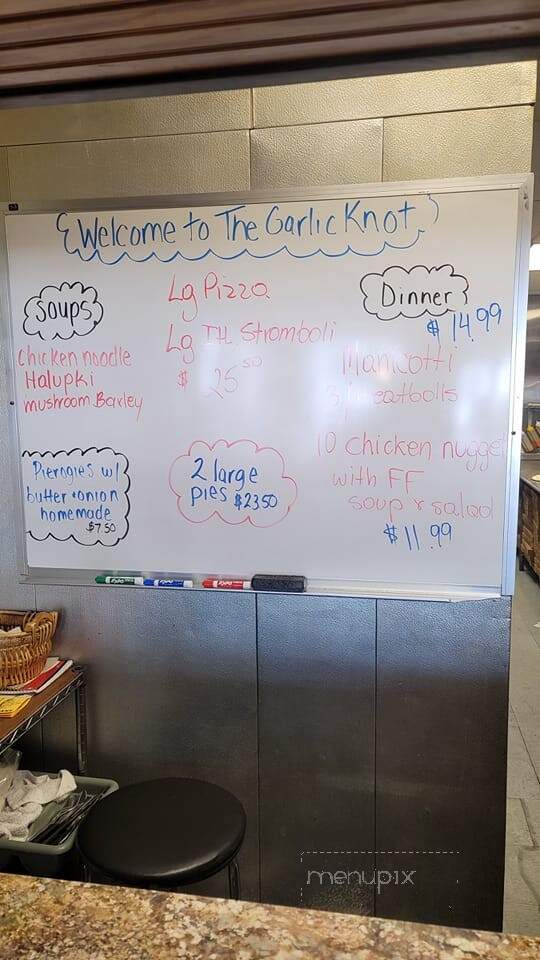 Welcome to The Garlic Knot
Soups
Chicken noodle
Halupki
mushroom Barley
Lg Pizza
Lg Stromboli
Dinner
$14.99
Manicotti
meatballs
10 chicken nugget
with FF
soup & salad
$11.99
Pierogies w/
butter onion
homemade
$7.50
2 large
pies $23.50
menupix